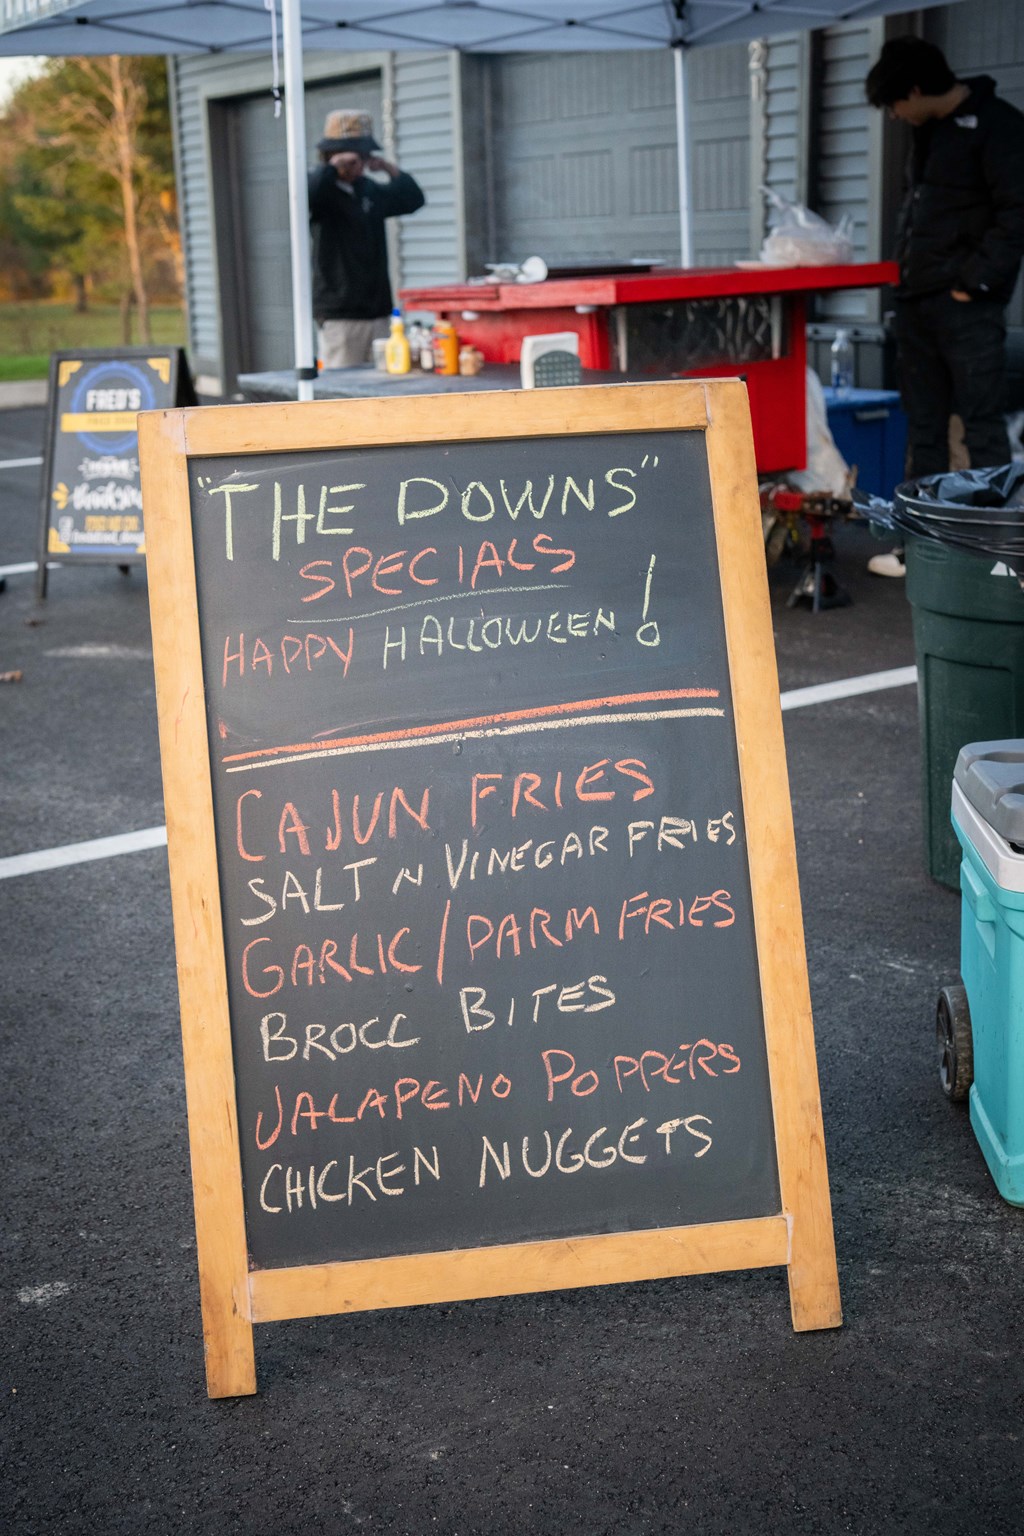 "THE DOWNS"
SPECIALS
HAPPY HALLOWEEN!
CAJUN FRIES
SALT N VINEGAR FRIES
GARLIC/PARM FRIES
BROCC BITES
JALAPENO POPPERS
CHICKEN NUGGETS
FRED'S